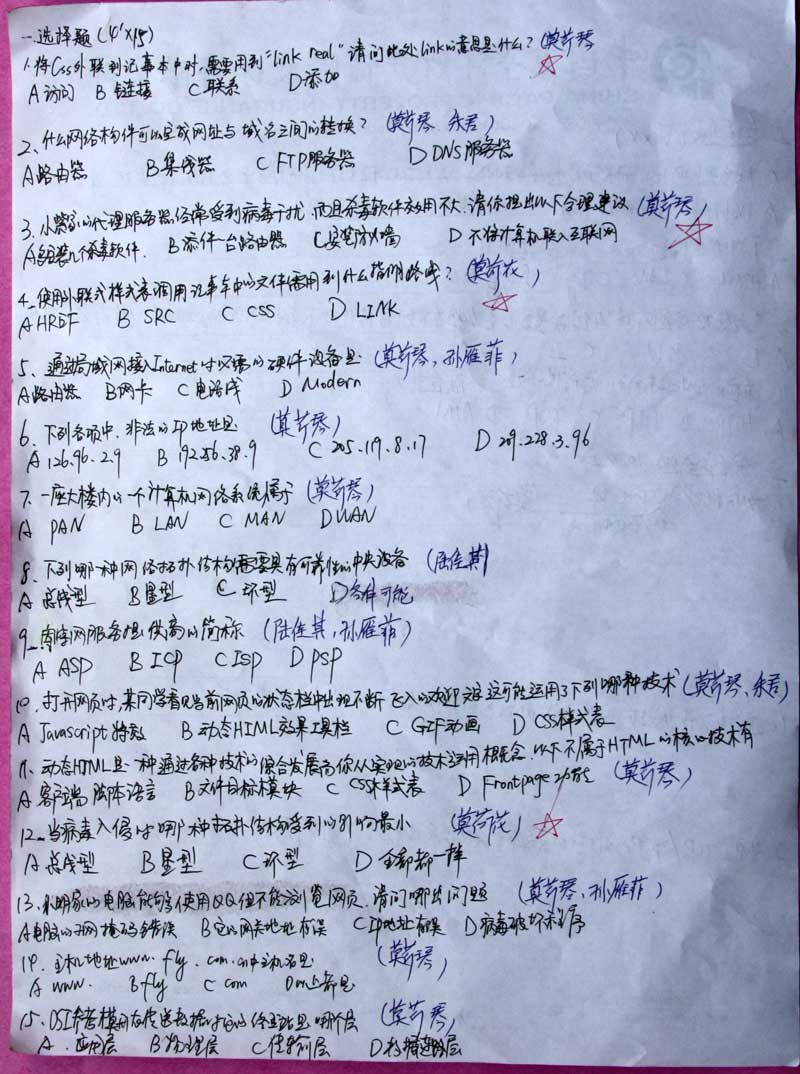 一.选择题(4'×15)
1.将Css外联到记事本中时,需要用到"link real"请问此处link的意思是什么?(莫芹琴)
A访问 B链接 C联系 D添加
2、什么网络构件可以完成网址与域名之间的转换?(莫芹琴、朱君)
A路由器 B集线器 C FTP服务器 D DNS服务器
3.小紫家的代理服务器经常受到病毒干扰,而且杀毒软件效用不大.请你提出以下合理建议(莫芹琴)
A多装几个杀毒软件. B添件一台路由器 C安装防火墙 D不将计算机联入互联网
4、使用外联式样式表调用记事本中的文件需用到什么指明路线?(莫荷花)
A HREF B SRC C CSS D LINK
5、通过局域网接入Internet时必需的硬件设备是(莫芹琴,孙雁菲)
A路由器 B网卡 C电话线 D Modern
6、下列各项中,非法的IP地址是(莫芹琴)
A 126.96.2.9 B 192.56.38.9 C 205.119.8.17 D 209.228.3.96
7.一座大楼内的一个计算机网络系统属于(莫芹琴)
A PAN B LAN C MAN D WAN
8、下列哪一种网络拓扑结构需要具有可靠性的中央设备(陆佳其)
A总线型 B星型 C环型 D各种可能
9、南宁网服务提供商的简称(陆佳其,孙雁菲)
A ASP B ICP C ISP D PSP
10、打开网页时,某同学看见当前网页的状态栏中出现不断飞入的欢迎文字这可能运用了下列哪种技术(莫芹琴、朱君)
A Javascript特效 B动态HIML效果工具栏 C GIF动画 D CSS样式表
11、动态HTML是一种通过各种技术的综合发展而你从实现的技术运用概念,以下不属于HTML的核心技术有
A客户端脚本语言 B文件目标模块 C CSS样式表 D Frontpage功能(莫芹琴)
12、当病毒入侵时哪种拓扑结构受到的影响最小(莫荷花)
A总线型 B星型 C环型 D全都都一样
13、小明家的电脑能够使用QQ但不能浏览网页.请问哪出问题(莫芹琴,孙雁菲)
A电脑的子网掩码错误 B它的网关地址有误 C Ip地址有误 D病毒破坏程序
14、主机地址www.fly.com.cn中主机名是(莫芹琴)
A www. B fly C com D以上都是
15、OSI参考模型在传送数据时的终点站是哪个层(莫芹琴)
A.应用层 B物理层 C传输层 D数据链路层